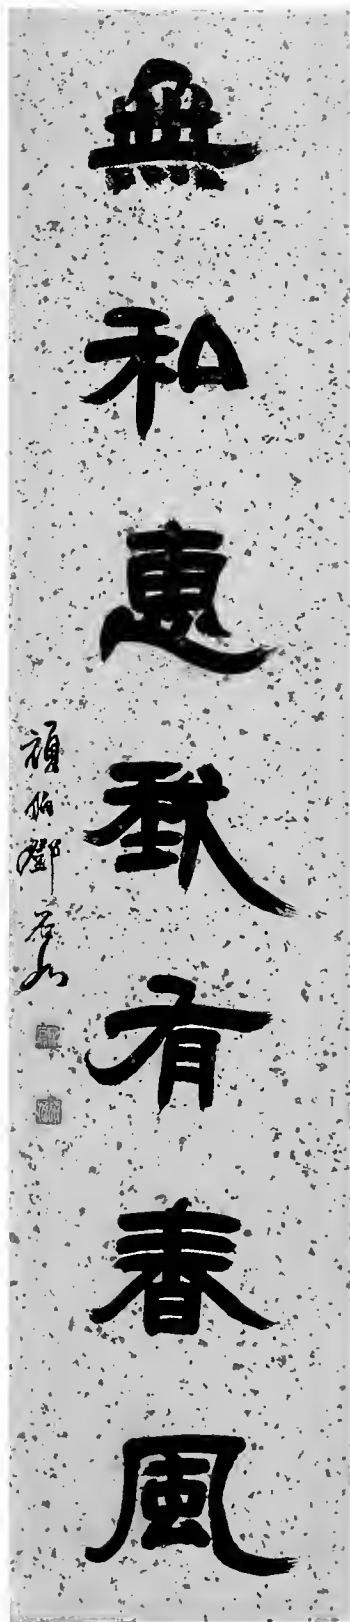 無私惠有春風
頑伯鄧石如